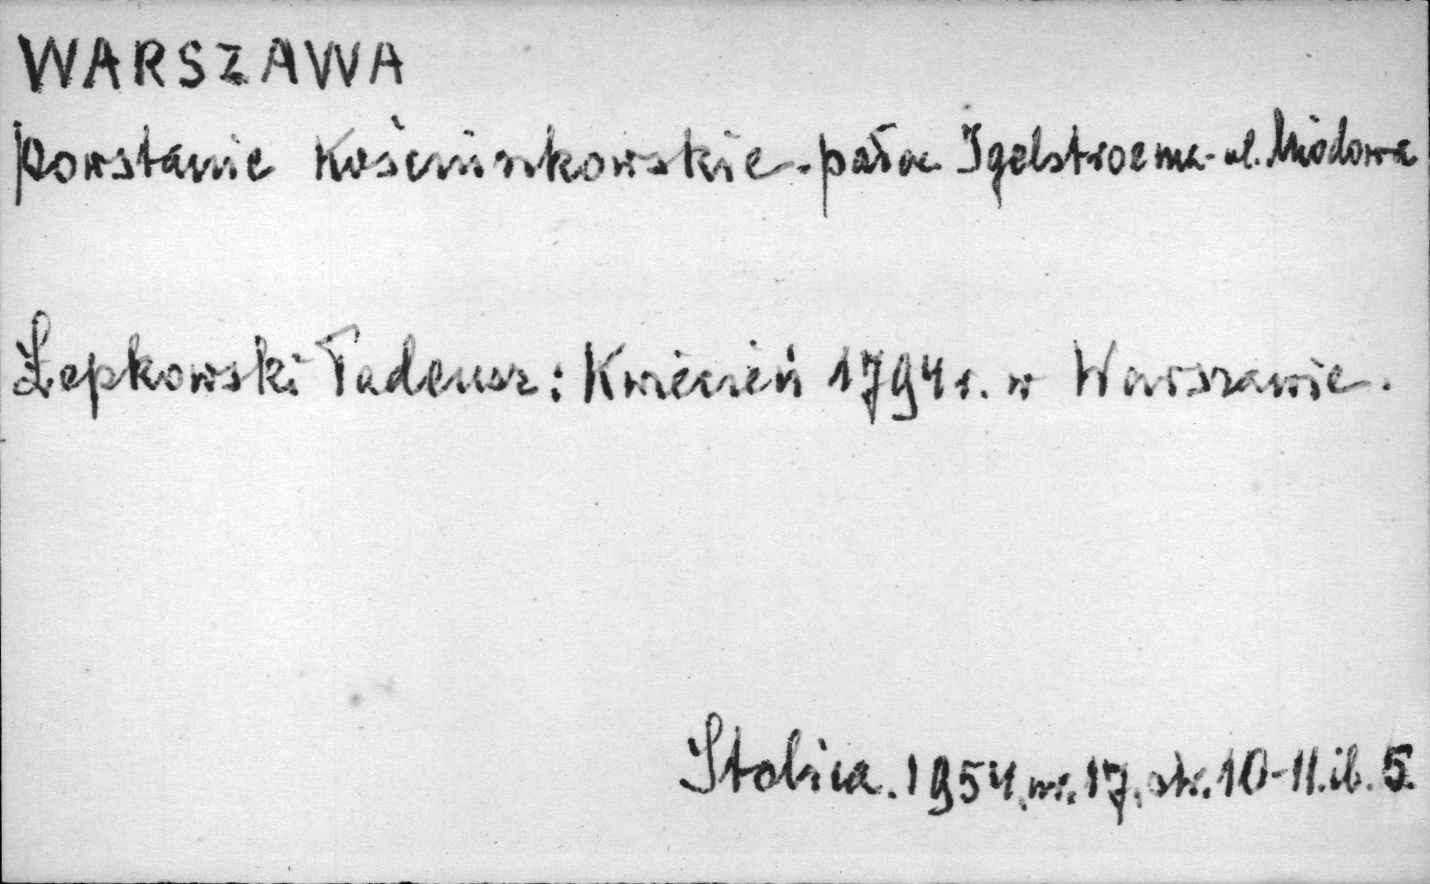 WARSZAWA
Powstanie Kościuszkowskie - pałac Igelstroema - ul. Miodowa
Łepkowski Tadeusz: Kwiecień 1794 r. w Warszawie.
Stolica. 1954, nr. 17, str. 10-11. il. 5.